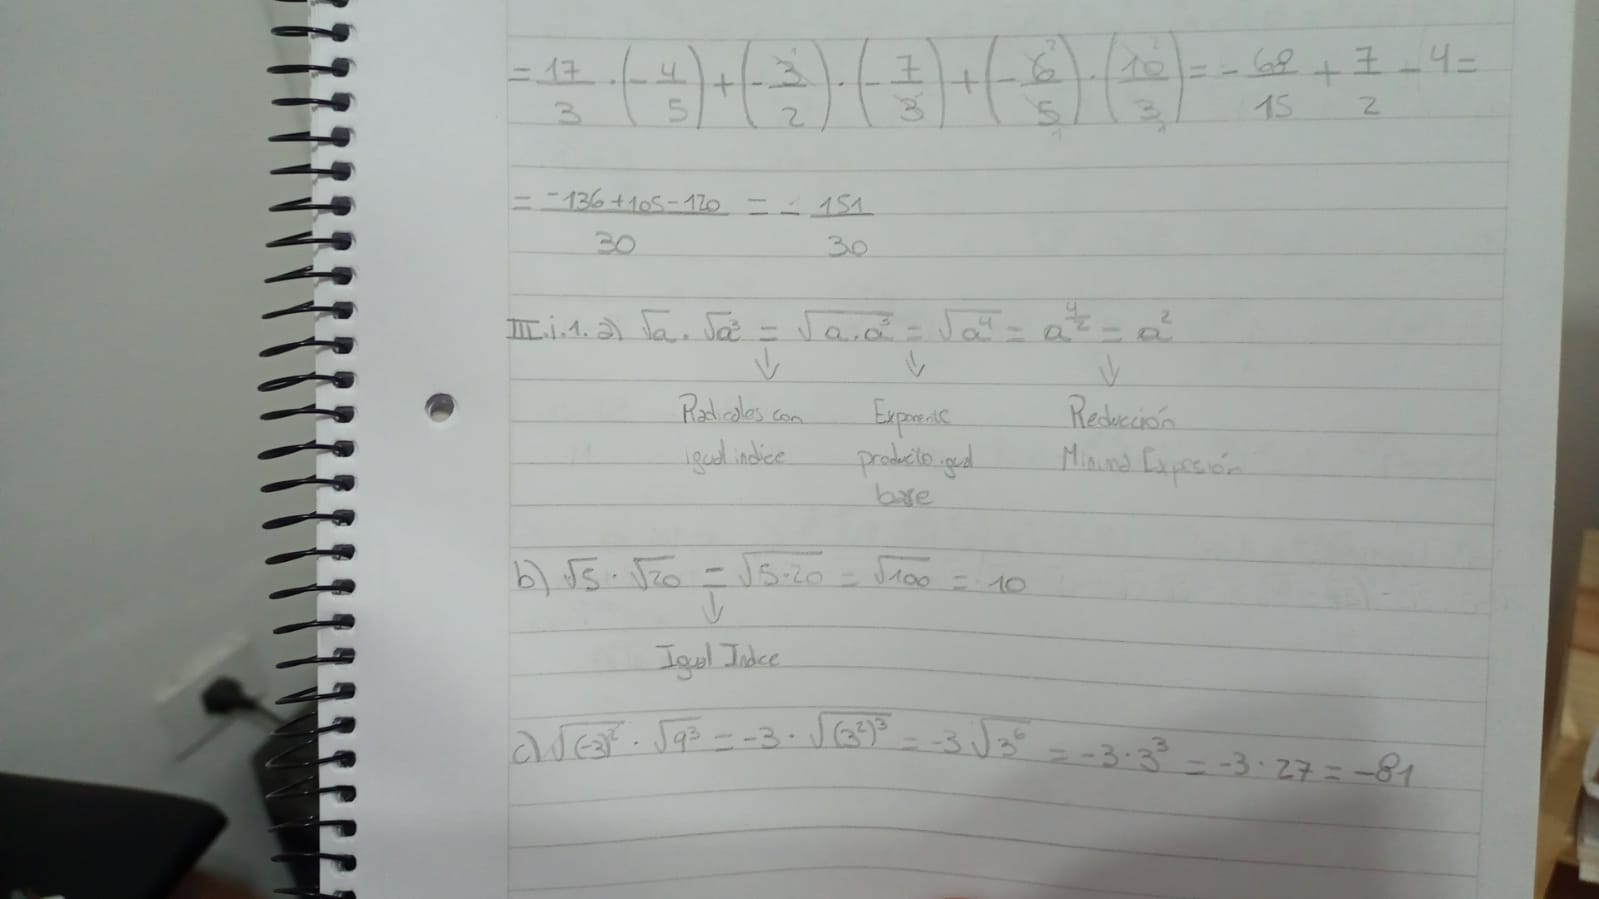 = 17/3 · (- 4/5) + (- 3/2) · (- 7/3) + (- 6/5) · (10/3) = - 68/15 + 7/2 - 4 =
= -136+105-120/30 = - 151/30
III.i.1. a) √a · √a³ = √a.a³ = √a⁴ = a^4/2 = a²
↓ ↓ ↓
Radicales con Exponente Reducción
igual indice producto igual Minima Expresión
base
b) √5 · √20 = √5·20 = √100 = 10
↓
Igual Indice
c) √(-3)² · √9³ = -3 · √(3²)³ = -3√3⁶ = -3·3³ = -3·27 = -81